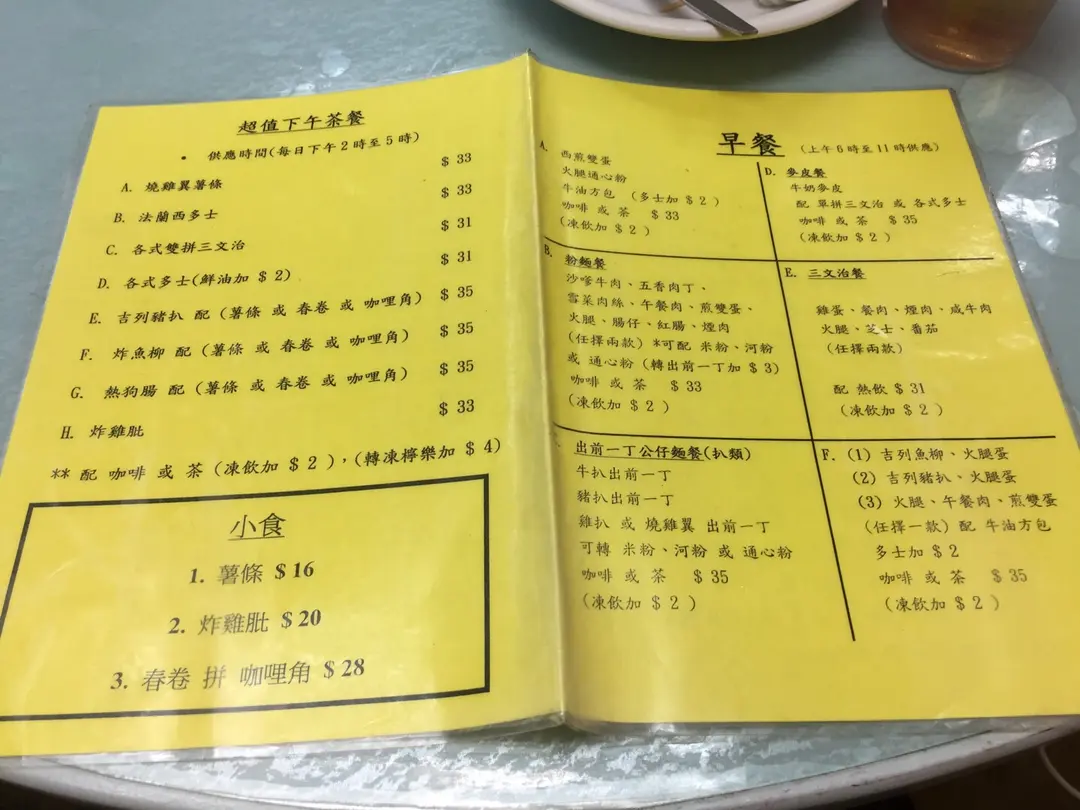 超值下午茶餐
• 供應時間(每日下午2時至5時)
A. 燒雞翼薯條 $ 33
B. 法蘭西多士 $ 33
C. 各式雙拼三文治 $ 31
D. 各式多士(鮮油加 $ 2) $ 31
E. 吉列豬扒 配 (薯條 或 春卷 或 咖哩角) $ 35
F. 炸魚柳 配 (薯條 或 春卷 或 咖哩角) $ 35
G. 熱狗腸 配 (薯條 或 春卷 或 咖哩角) $ 35
H. 炸雞肶 $ 33
** 配 咖啡 或 茶 (凍飲加 $ 2 ),(轉凍檸樂加 $ 4)
小食
1. 薯條 $ 16
2. 炸雞肶 $ 20
3. 春卷 拼 咖哩角 $ 28
早餐 (上午6時至11時供應)
A. 西煎雙蛋
火腿通心粉
牛油方包 (多士加 $ 2 )
咖啡 或 茶 $ 33
(凍飲加 $ 2 )
B. 粉麵餐
沙嗲牛肉、五香肉丁、
雪菜肉絲、午餐肉、煎雙蛋、
火腿、腸仔、紅腸、煙肉
(任擇兩款) *可配 米粉、河粉
或 通心粉 (轉出前一丁加 $ 3)
咖啡 或 茶 $ 33
(凍飲加 $ 2 )
出前一丁公仔麵餐(扒類)
牛扒出前一丁
豬扒出前一丁
雞扒 或 燒雞翼 出前一丁
可轉 米粉、河粉 或 通心粉
咖啡 或 茶 $ 35
(凍飲加 $ 2 )
D. 麥皮餐
牛奶麥皮
配 單拼三文治 或 各式多士
咖啡 或 茶 $ 35
(凍飲加 $ 2 )
E. 三文治餐
雞蛋、餐肉、煙肉、咸牛肉
火腿、芝士、番茄
(任擇兩款)
配 熱飲 $ 31
(凍飲加 $ 2 )
F. (1) 吉列魚柳、火腿蛋
(2) 吉列豬扒、火腿蛋
(3) 火腿、午餐肉、煎雙蛋
(任擇一款) 配 牛油方包
多士加 $ 2
咖啡 或 茶 $ 35
(凍飲加 $ 2 )